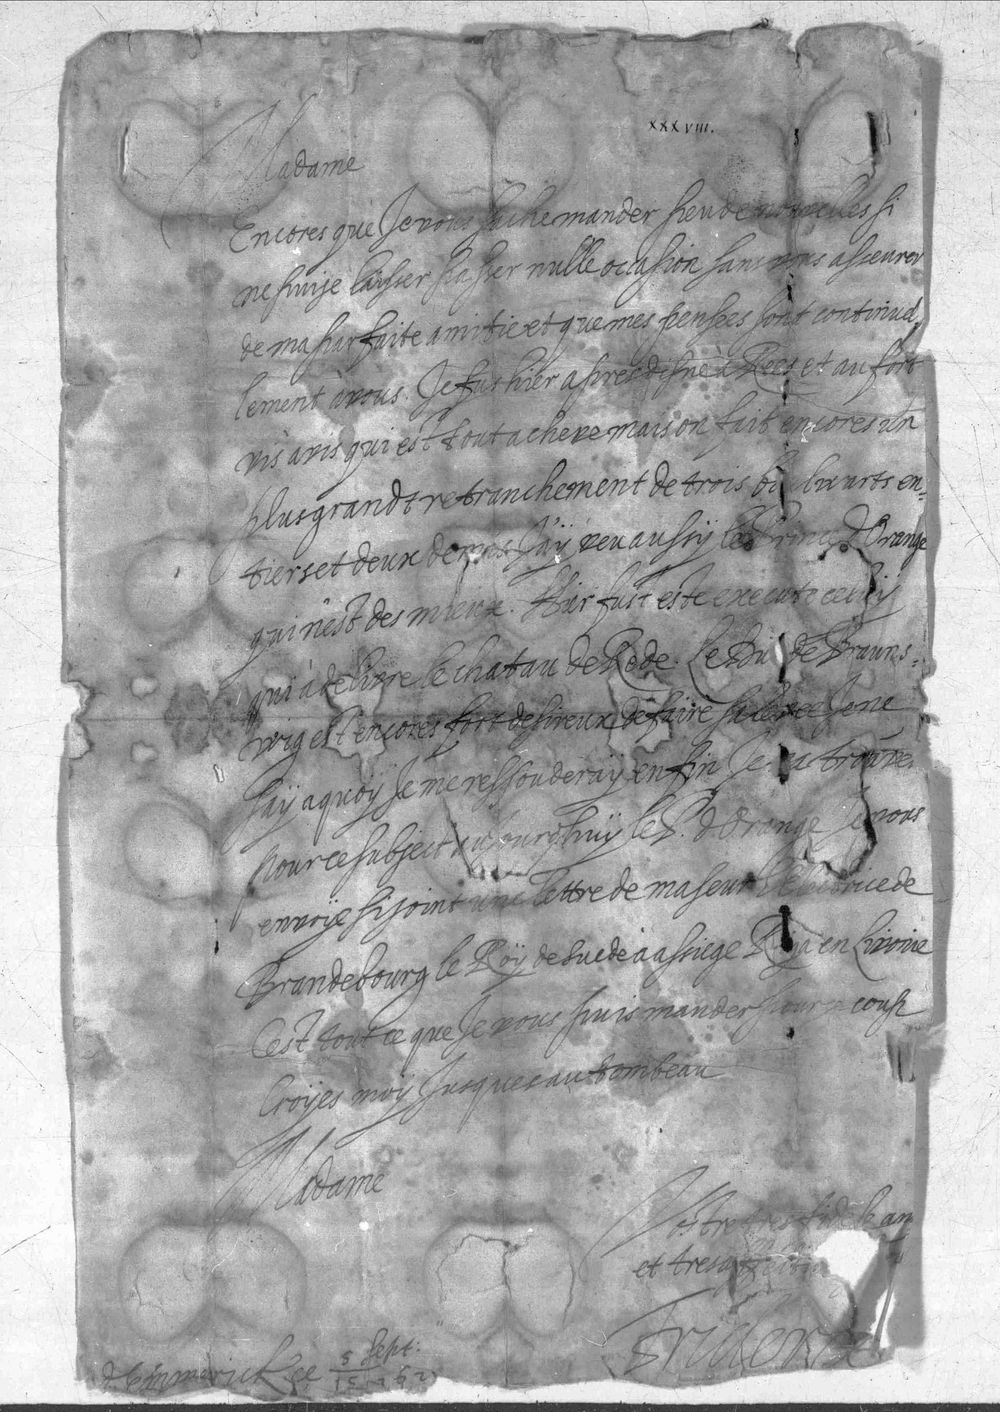 xxxviii.
Madame
Encores que Je vous sache mander peu de nouvelles si
ne puije laisser passer nulle occasion sans vous asseurer
de ma parfaite amitie et que mes pensees sont continuel
lement à vous. Je fus hier apres disné à Rees et au fort
vis a vis qui est tout acheve mais on fait encores un
plus grandt retranchement de trois bolwarts en=
tiers et deux demis J'aÿ veu aussÿ le Prince d'Orange
qui n'est des mieux. Hier fust este execute celuÿ
qui à delivre le chatau de Rede. Le Duc de Brunns=
wig est encores fort desireux de faire sa levee Je ne
saÿ a quoÿ Je me ressouderaÿ enfin Je va trouver
pour ce subject aujourghuÿ le P. d'Orange Je vous
envoÿe sijoint une lettre de ma seur de
Brandebourg le Roÿ de Suede a assiege Riga en Livonie
C'est tout ce que Je vous puis mander pour ce coup
Croÿes moÿ Jusques au tombeau
Madame
Vostre tres fidele am
et tres affection
Frideric
d'Emmerick ce 5/15 Sept: 1621